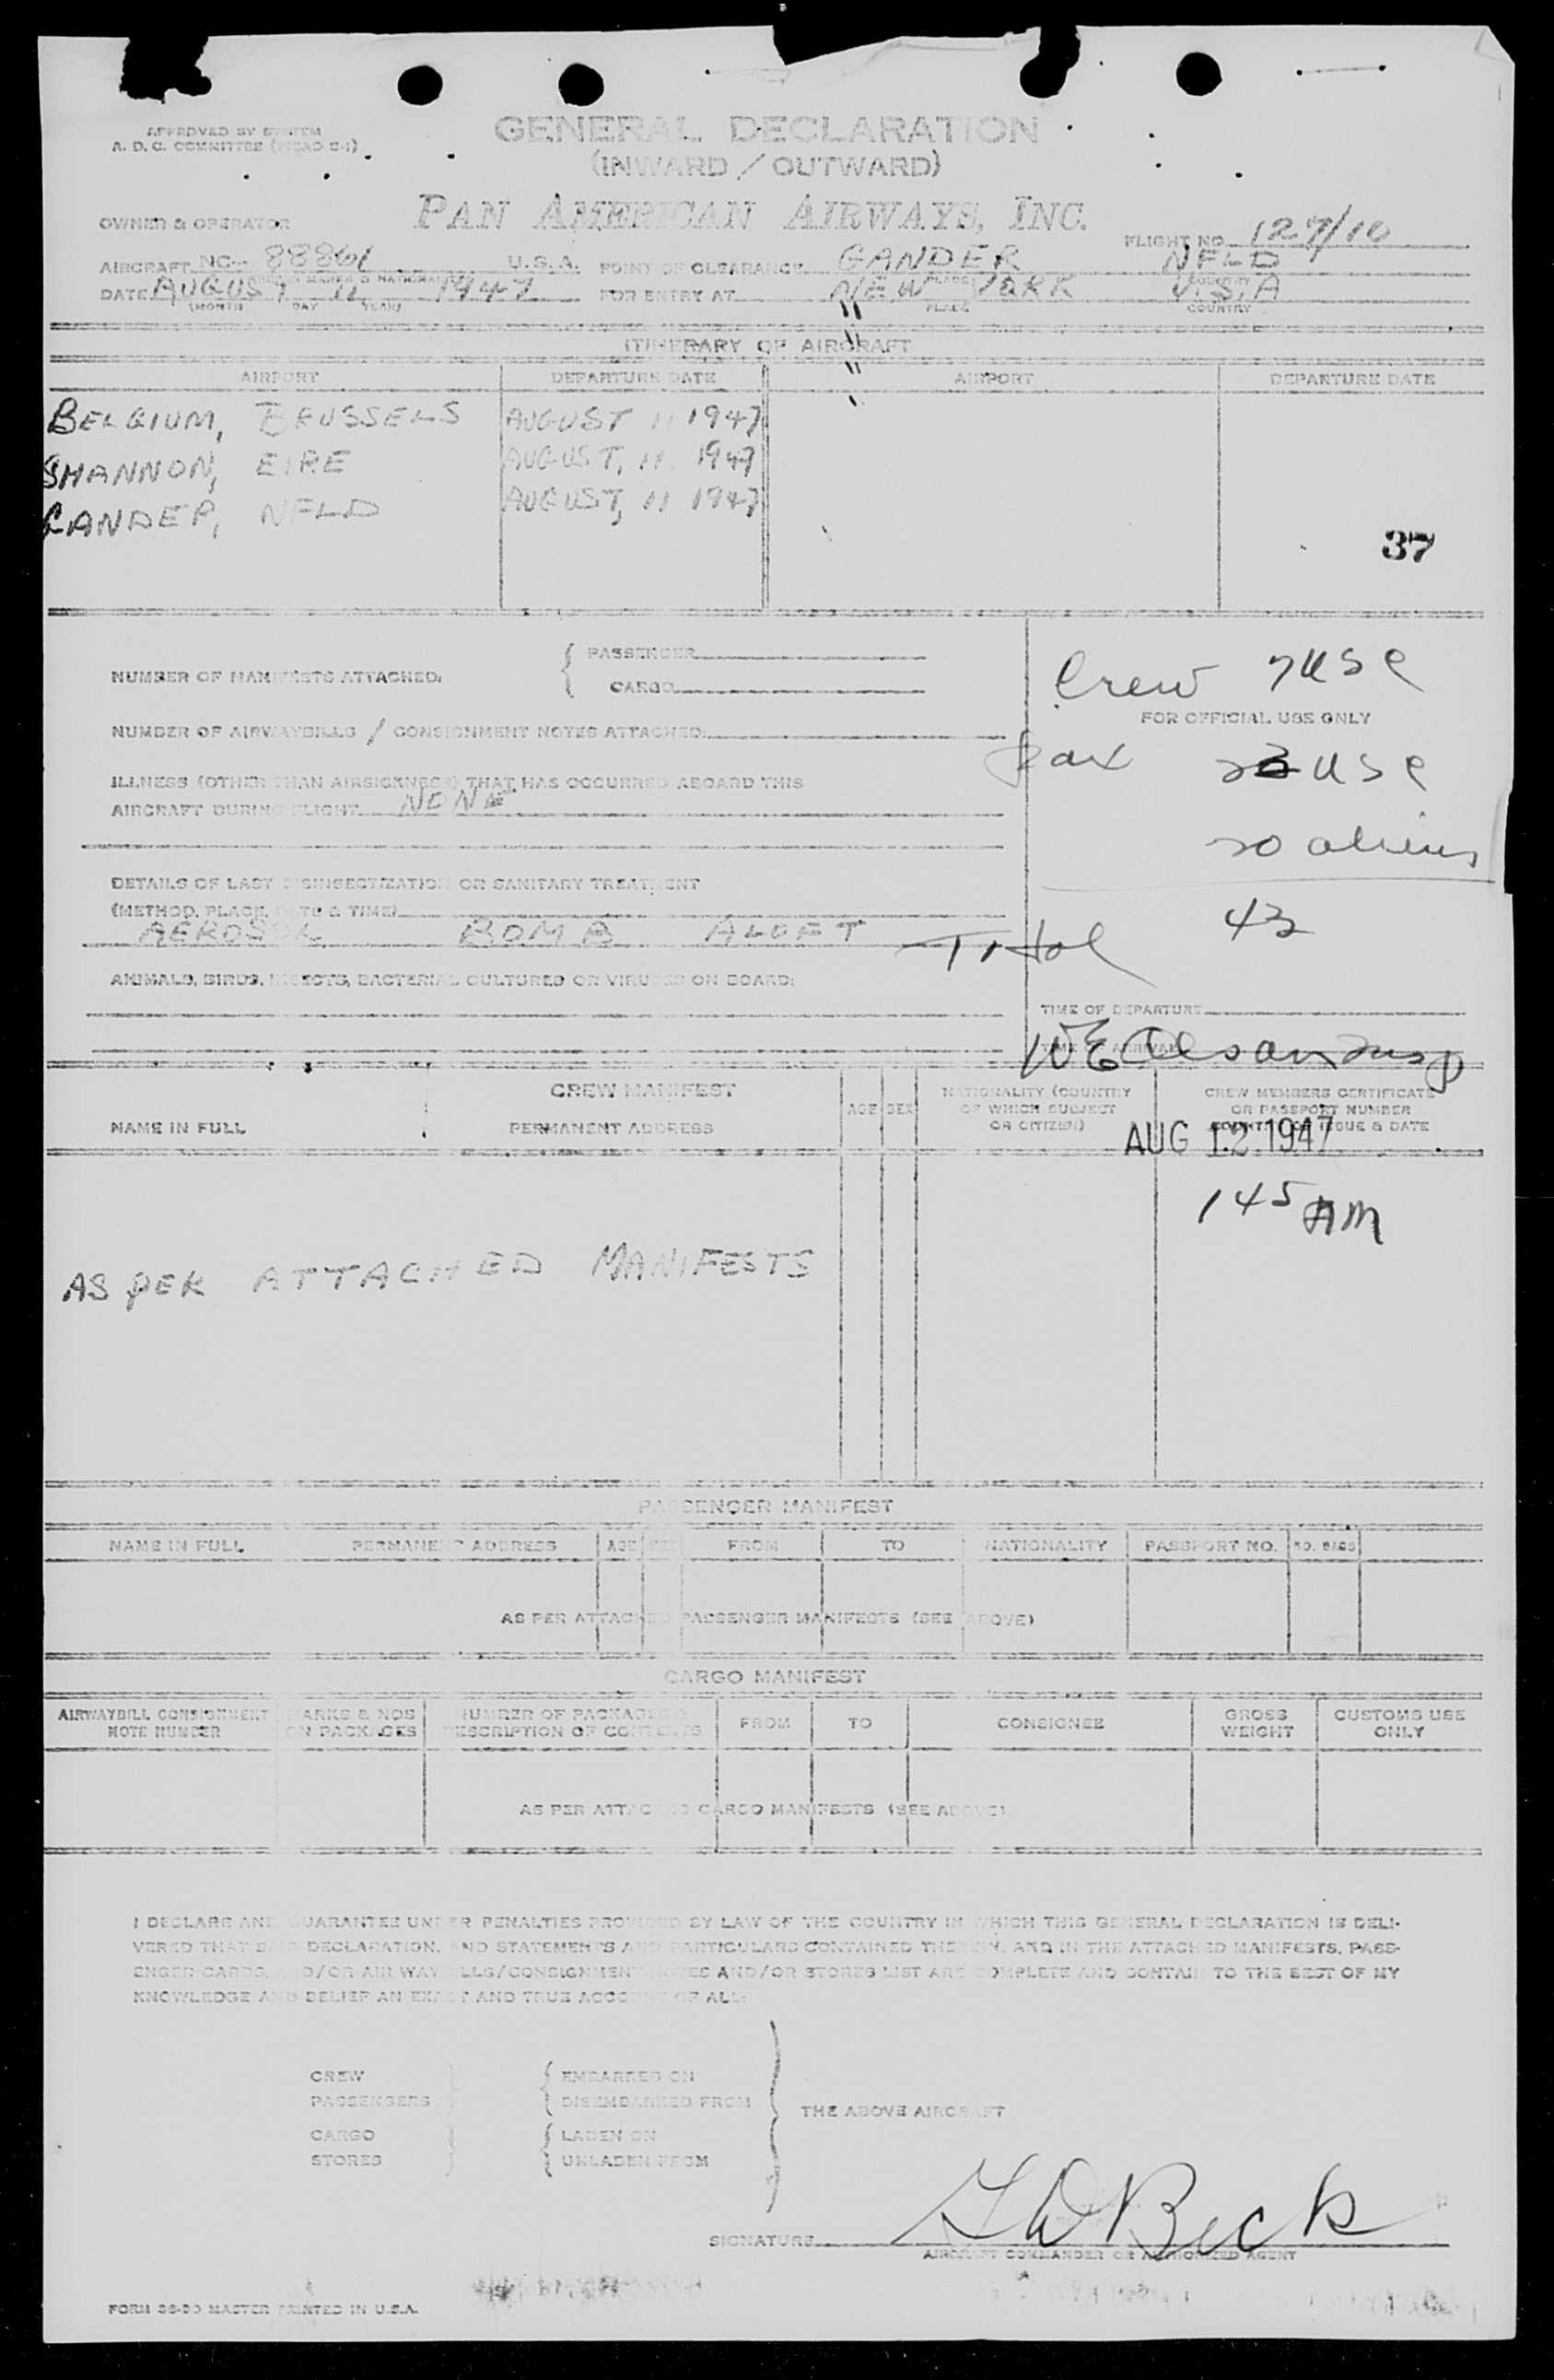 APPROVED BY SYSTEM
A. D. C. COMMITTEE
GENERAL DECLARATION
(INWARD / OUTWARD)
OWNER & OPERATOR
PAN AMERICAN AIRWAYS, INC.
FLIGHT NO. 127/10
AIRCRAFT NC- 88861 U.S.A. POINT OF CLEARANCE GANDER NFLD
DATE AUGUST 11 1947 FOR ENTRY AT NEW YORK U.S.A
(MONTH DAY YEAR) PLACE COUNTRY
ITINERARY OF AIRCRAFT
AIRPORT DEPARTURE DATE AIRPORT DEPARTURE DATE
BELGIUM, BRUSSELS AUGUST 11 1947
SHANNON, EIRE AUGUST, 11 1947
GANDER, NFLD AUGUST, 11 1947
37
NUMBER OF MANIFESTS ATTACHED: PASSENGER
CARGO
Crew 7 USC
FOR OFFICIAL USE ONLY
NUMBER OF AIRWAYBILLS / CONSIGNMENT NOTES ATTACHED:
Pax USC
ILLNESS (OTHER THAN AIRSICKNESS) THAT HAS OCCURRED ABOARD THIS
AIRCRAFT DURING FLIGHT NONE
20 aliens
DETAILS OF LAST DISINSECTIZATION OR SANITARY TREATMENT
(METHOD, PLACE, DATE & TIME)
AEROSOL BOMB ALOFT
Total 43
ANIMALS, BIRDS, INSECTS, BACTERIAL CULTURES OR VIRUSES ON BOARD:
TIME OF DEPARTURE
TIME OF ARRIVAL
CREW MANIFEST
NAME IN FULL PERMANENT ADDRESS AGE SEX NATIONALITY (COUNTRY OF WHICH SUBJECT OR CITIZEN) CREW MEMBERS CERTIFICATE OR PASSPORT NUMBER COUNTRY OF ISSUE & DATE
AUG 12 1947
145 AM
AS PER ATTACHED MANIFESTS
PASSENGER MANIFEST
NAME IN FULL PERMANENT ADDRESS AGE SEX FROM TO NATIONALITY PASSPORT NO. NO. BAGS
AS PER ATTACHED PASSENGER MANIFESTS (SEE ABOVE)
CARGO MANIFEST
AIRWAYBILL CONSIGNMENT NOTE NUMBER MARKS & NOS ON PACKAGES NUMBER OF PACKAGES & DESCRIPTION OF CONTENTS FROM TO CONSIGNEE GROSS WEIGHT CUSTOMS USE ONLY
AS PER ATTACHED CARGO MANIFESTS (SEE ABOVE)
I DECLARE AND GUARANTEE UNDER PENALTIES PROVIDED BY LAW OF THE COUNTRY IN WHICH THIS GENERAL DECLARATION IS DELI-
VERED THAT SAID DECLARATION, AND STATEMENTS AND PARTICULARS CONTAINED THEREIN, AND IN THE ATTACHED MANIFESTS, PASS-
ENGER CARDS, AND/OR AIR WAYBILLS/CONSIGNMENT NOTES AND/OR STORES LIST ARE COMPLETE AND CONTAIN TO THE BEST OF MY
KNOWLEDGE AND BELIEF AN EXACT AND TRUE ACCOUNT OF ALL:
CREW EMBARKED ON
PASSENGERS DISEMBARKED FROM
THE ABOVE AIRCRAFT
CARGO LADEN ON
STORES UNLADEN FROM
SIGNATURE Beck
AIRCRAFT COMMANDER OR AUTHORIZED AGENT
FORM 36-90 MASTER PRINTED IN U.S.A.